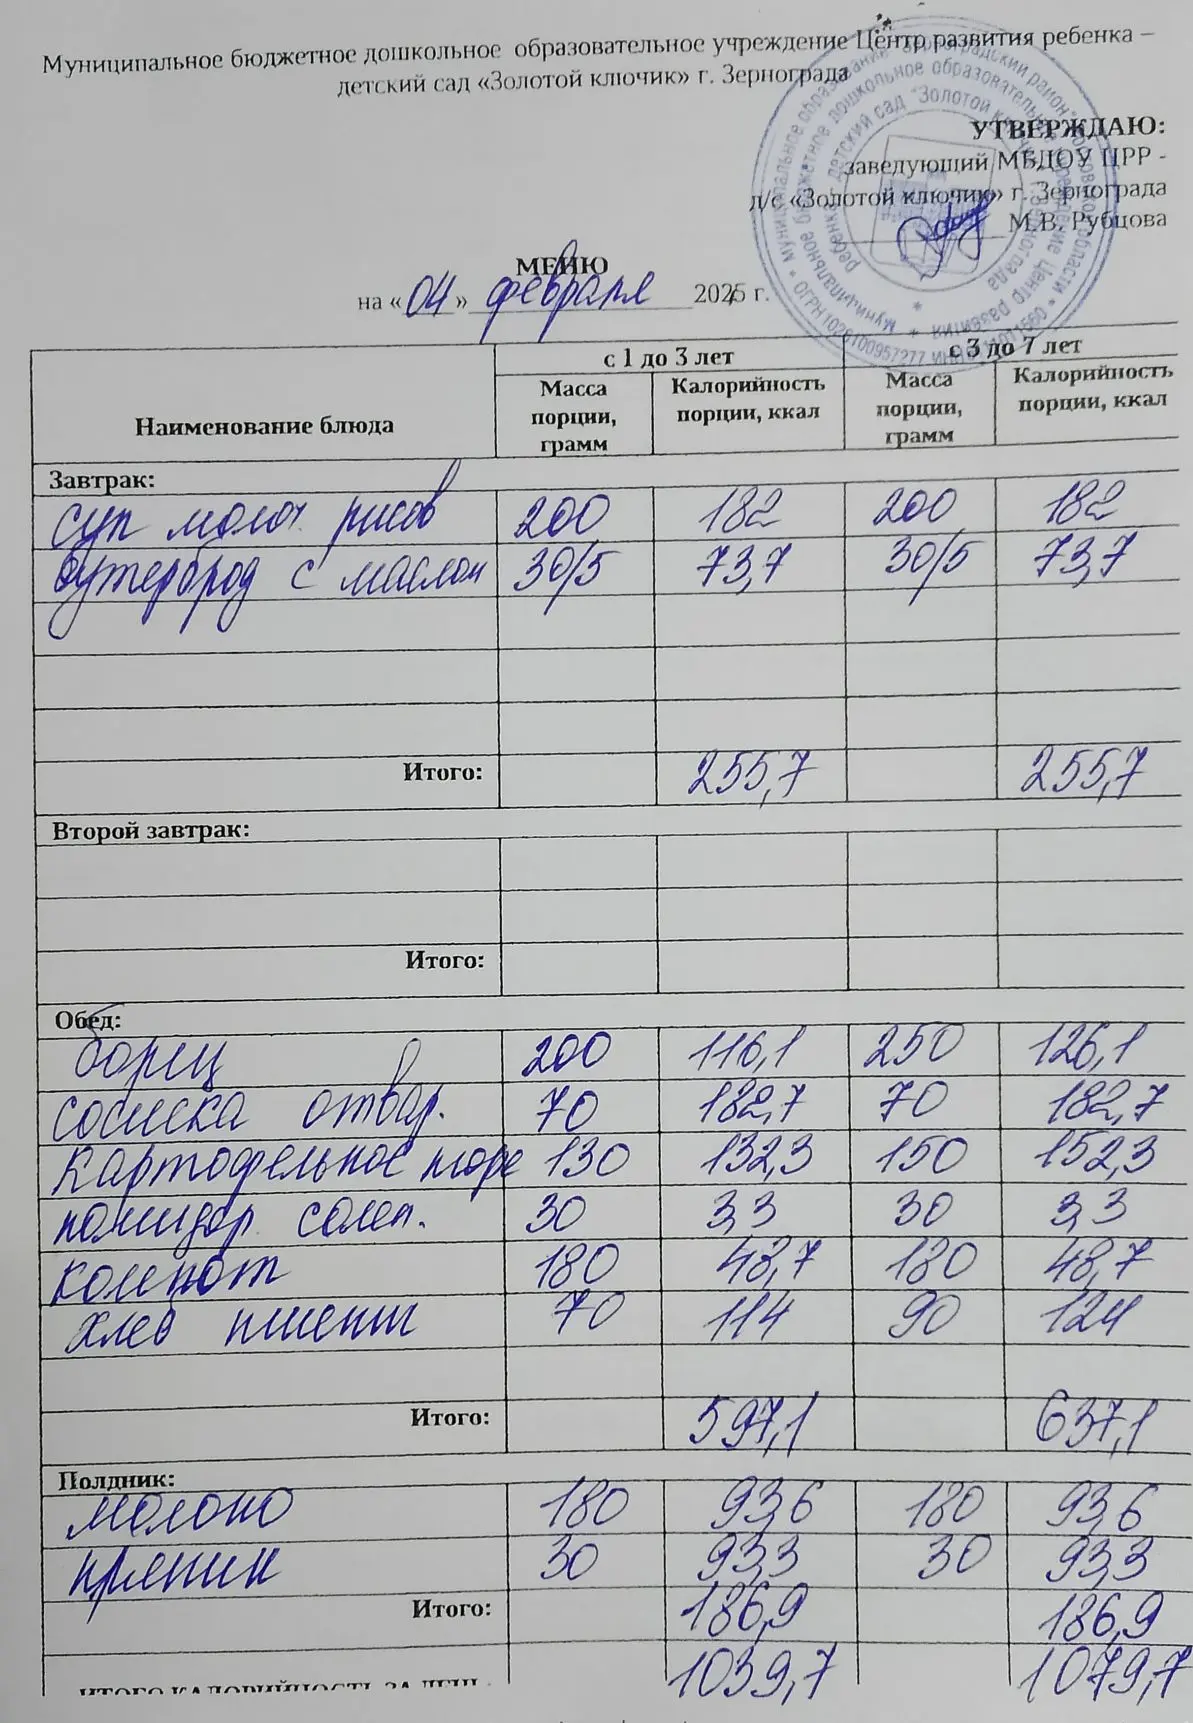 Муниципальное бюджетное дошкольное образовательное учреждение Центр развития ребенка –
детский сад «Золотой ключик» г. Зернограда
УТВЕРЖДАЮ:
заведующий МБДОУ ЦРР -
д/с «Золотой ключик» г. Зернограда
М.В. Рубцова
МЕНЮ
на «04» февраля 2025 г.
с 1 до 3 лет с 3 до 7 лет
Наименование блюда Масса порции, грамм Калорийность порции, ккал Масса порции, грамм Калорийность порции, ккал
Завтрак:
суп молоч. рисов 200 182 200 182
бутерброд с маслом 30/5 73,7 30/5 73,7
Итого: 255,7 255,7
Второй завтрак:
Итого:
Обед:
борщ 200 116,1 250 126,1
сосиска отвар. 70 182,7 70 182,7
картофельное пюре 130 132,3 150 152,3
помидор солен. 30 3,3 30 3,3
компот 180 48,7 180 48,7
хлеб пшенич 70 114 90 124
Итого: 597,1 637,1
Полдник:
молоко 180 93,6 180 93,6
пряник 30 93,3 30 93,3
Итого: 186,9 186,9
ИТОГО КАЛОРИЙНОСТЬ ЗА ДЕНЬ: 1039,7 1079,7